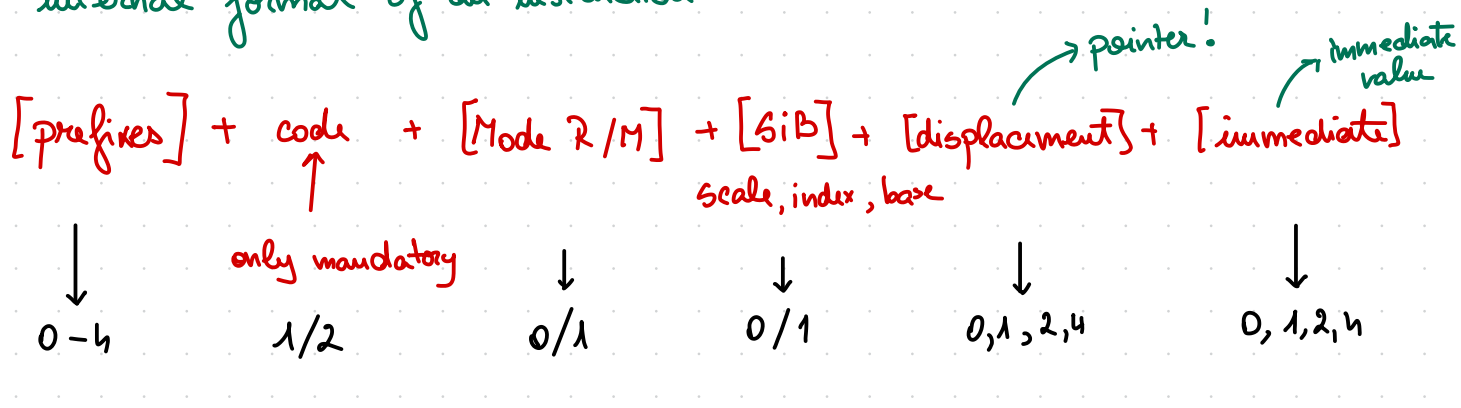 internal format of an instruction
pointer!
immediate
value
[prefixes] + code + [Mode R/M] + [SiB] + [displacement] + [immediate]
scale, index, base
only mandatory
0-4 1/2 0/1 0/1 0,1,2,4 0,1,2,4